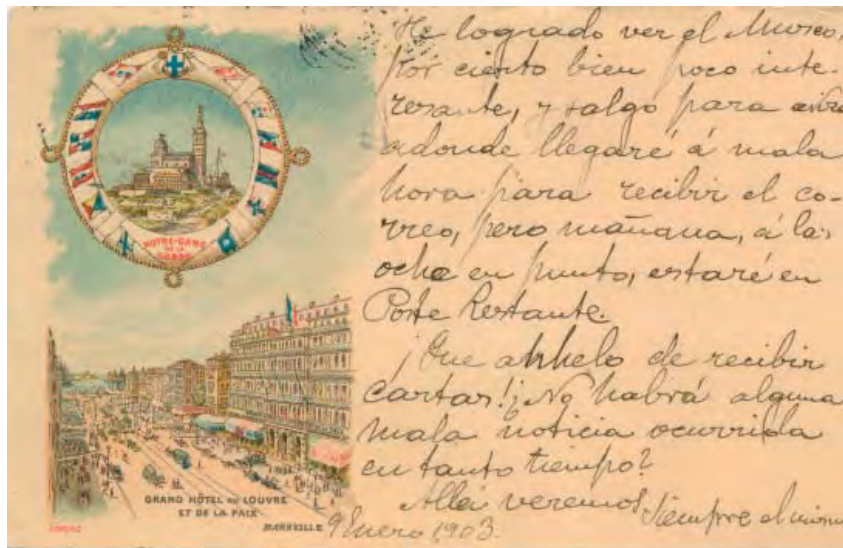 NOTRE-DAME
DE LA
GARDE
GRAND HÔTEL DU LOUVRE
ET DE LA PAIX
MARSEILLE
He logrado ver el Museo,
por cierto bien poco inte-
resante, y salgo para
adonde llegaré á mala
hora para recibir el co-
rreo, pero mañana, á las
ocho en punto, estaré en
Poste Restante.
¡Que anhelo de recibir
cartas! ¿No habrá alguna
mala noticia ocurrida
en tanto tiempo?
Allei veremos. Siempre el mismo
9 Enero 1903.